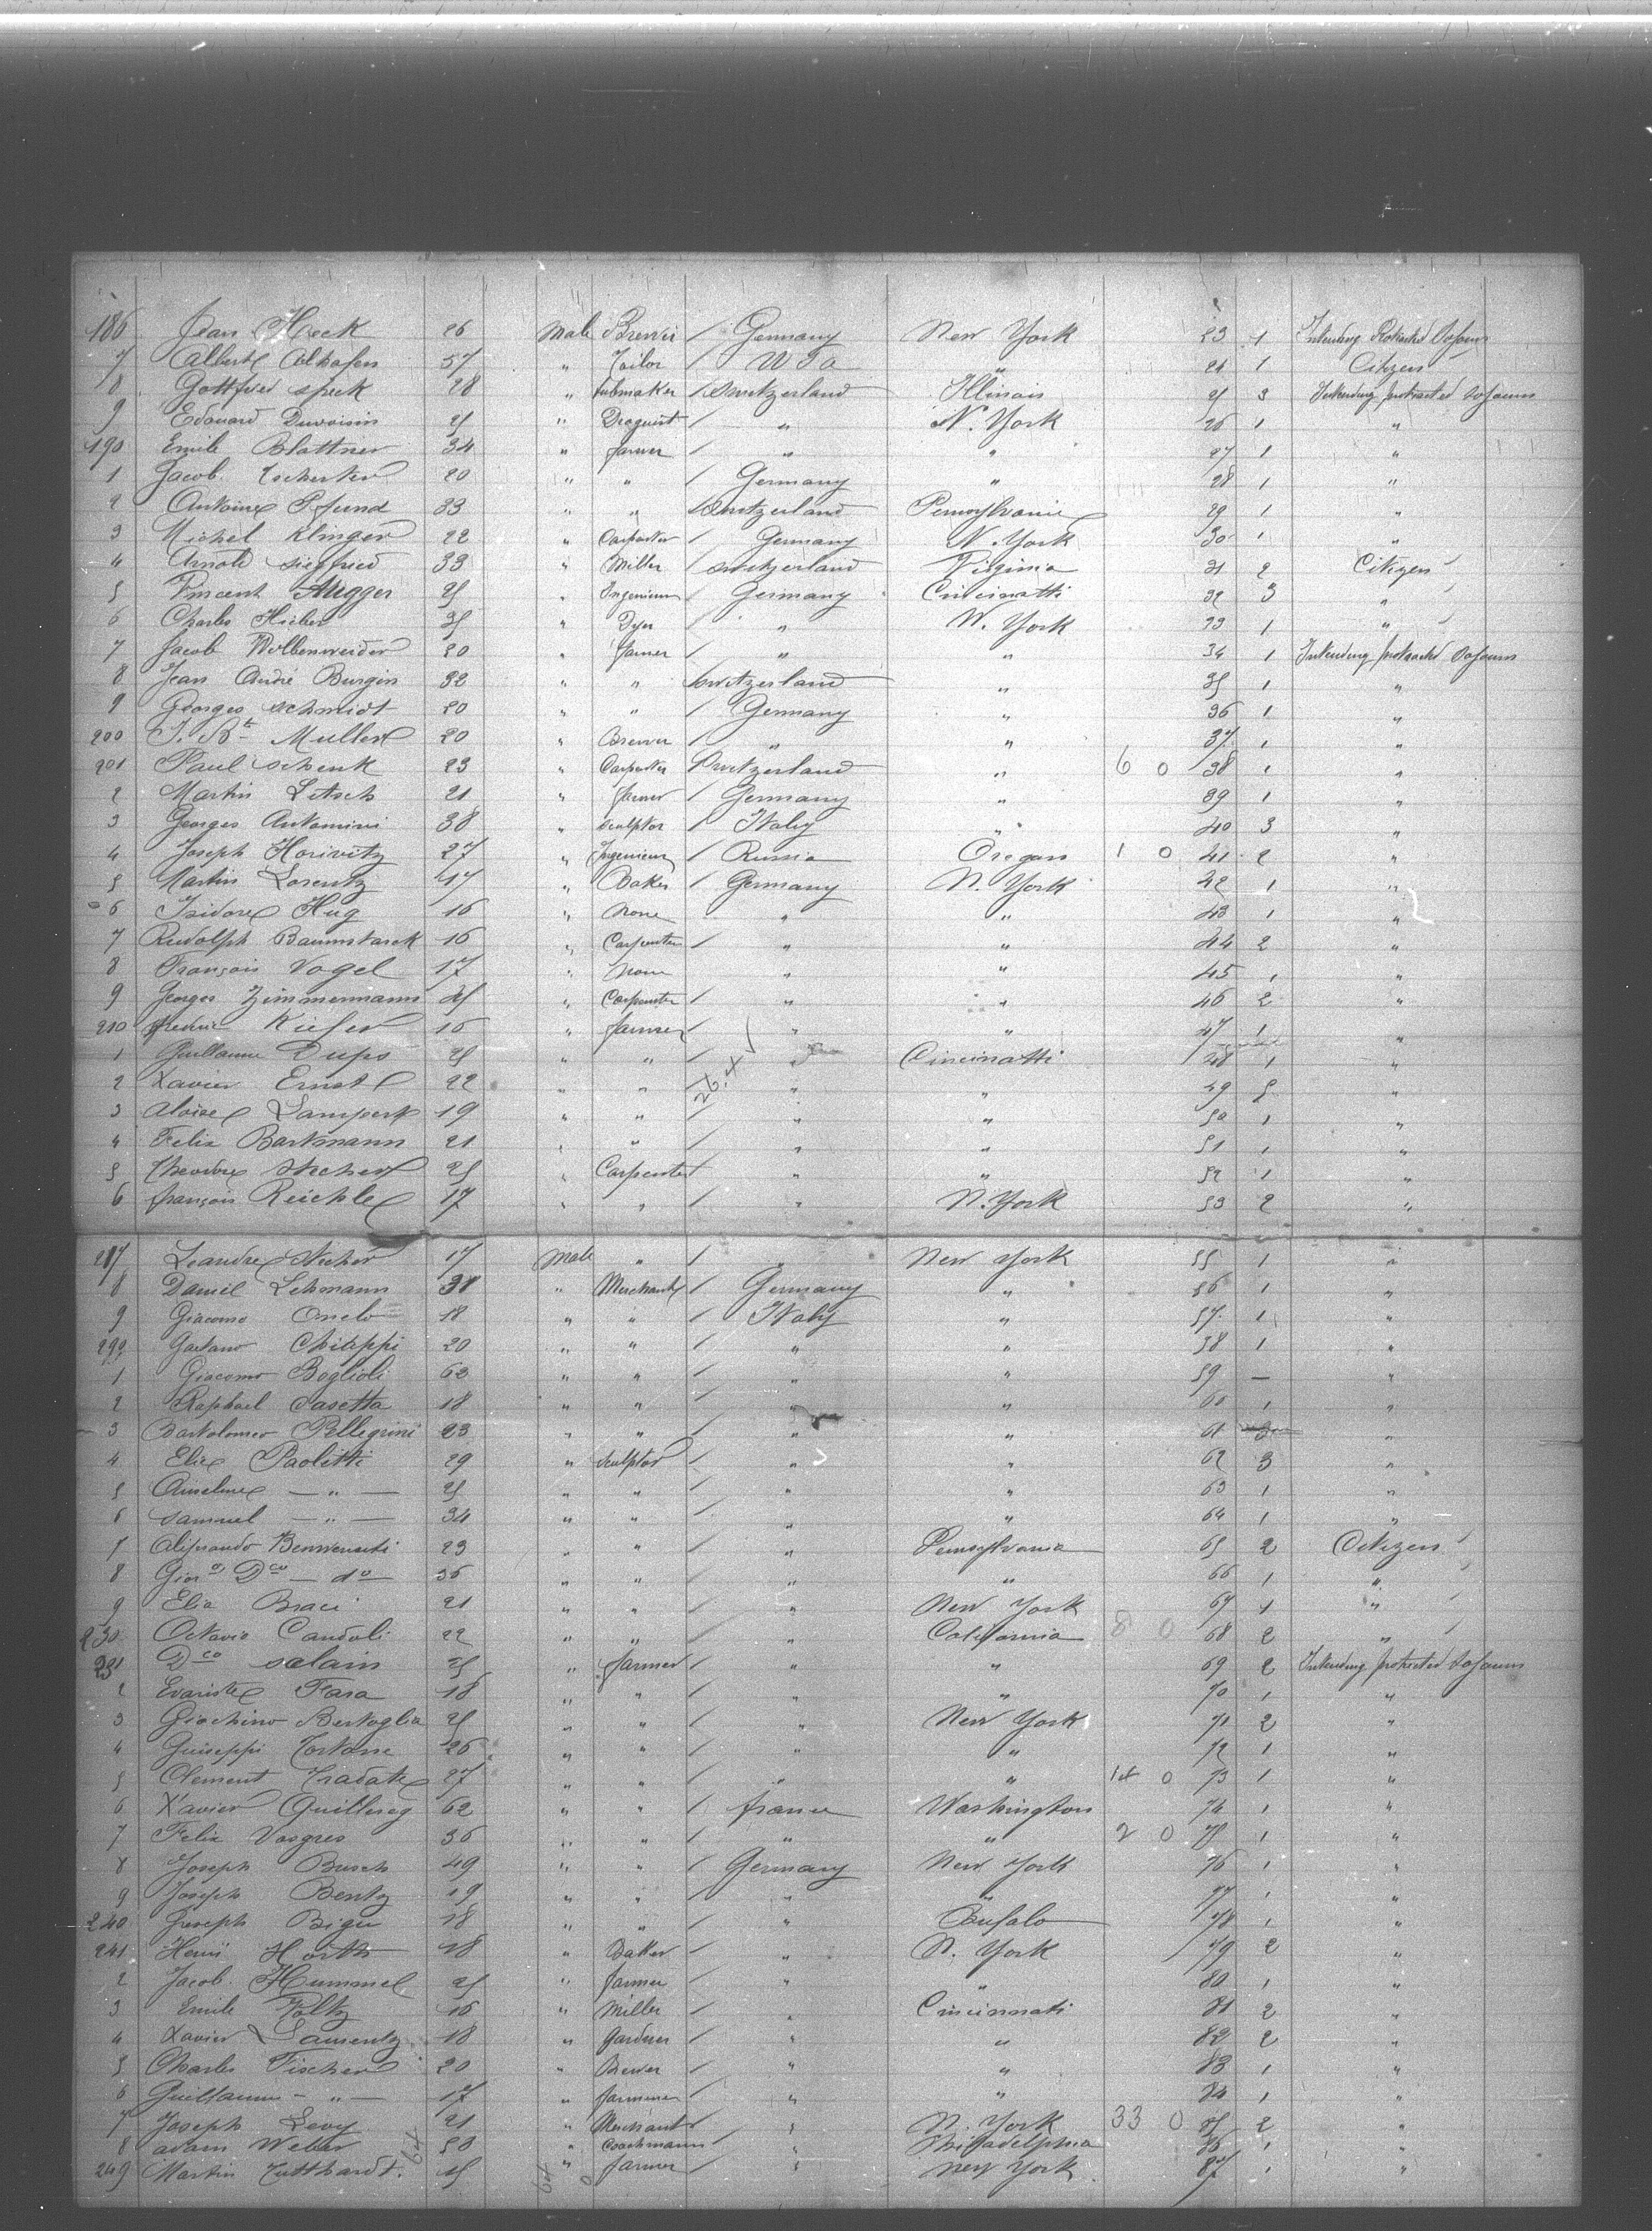 186 Jean Heck 26 Male Brewer / Germany New York 23 1 Intending Protracted Sojourn
7 Albert 57 " Tailor / U S a " 24 1 Citizen
8 Gottfried Speck 28 " / Switzerland Illinois 25 3 Intending protracted sojourn
9 Edouard Duvoisin 25 " / " N. York 26 1 "
190 Emile Blattner 34 " farmer / " " 27 1 "
1 Jacob 20 " " / Germany " 28 1 "
2 Antoine Pfund 33 " " / Switzerland Pennsylvania 29 1 "
3 Michel Klinger 22 " Carpenter / Germany N. York 30 1 "
4 Arnold Siegfried 33 " Miller / Switzerland Virginia 31 2 Citizen
5 Vincent 25 " Ingenieur / Germany Cincinatti 32 3 "
6 Charles Hieber 35 " Dyer / " N. York 33 1 "
7 Jacob 20 " farmer / " " 34 1 Intending protracted Sojourn
8 Jean André Burgin 32 " " / Switzerland " 35 1 "
9 Georges Schmidt 20 " " / Germany " 36 1 "
200 J. Bte Muller 20 " Brewer / " " 37 1 "
201 Paul Schenk 23 " Carpenter / Switzerland " 6 0 38 1 "
2 Martin Letsch 21 " farmer / Germany " 39 1 "
3 Georges Antomini 38 " Sculptor / Italy " 40 3 "
4 Joseph Horivitz 27 " Ingenieur / Russia Oregon 1 0 41 2 "
5 Martin Lorentz 47 " Baker / Germany N. York 42 1 "
6 Isidore Hug 16 " None " " 43 1 "
7 Rudolph Baumstarck 16 " Carpenter / " " 44 2 "
8 François Vogel 17 " None " " 45 1 "
9 Georges Zimmermann 25 " Carpenter / " " 46 2 "
210 frederic Kiefer 16 " farmer / " " 47 1 "
1 Guillaume Dups 25 " " / " Cincinatti 48 1 "
2 Xavier Ernst 22 " " / " " 49 5 "
3 Aloise Lampert 19 " " / " " 50 1 "
4 Felix Bartmann 21 " " / " " 51 1 "
5 Theodore Stecher 25 " Carpenter / " " 52 1 "
6 françois Reichle 17 " " / " N. York 53 2 "
217 Leandre Stecher 17 Male " / " New York 55 1 "
8 Daniel Lehmann 38 " Merchant / Germany " 56 1 "
9 Giacomo 18 " " / Italy " 57 1 "
Gaetano Chiappi 20 " " / " " 58 1 "
1 Giacomo Boglioli 62 " " / " " 59 — "
2 Raphael Casetta 18 " " / " " 60 1 "
3 Bartolomeo Pellegrini 23 " " / " " 61 "
4 Elie Paolitti 29 " Sculptor / " " 62 3 "
5 Anselme — " — 25 " " / " " 63 1 "
6 Samuel — " — 34 " " / " " 64 1 "
7 Aliprando Benvenuti 23 " " / " Pennsylvania 65 2 Citizen
8 Dco — do — 36 " " / " " 66 1 "
9 Elia Braci 21 " " / " New York 67 1 "
230 Octavio Candoli 22 " " / " California 8 0 68 2 "
231 Dco Salain 25 " farmer / " " 69 2 Intending protracted Sojourn
2 Evariste Fara 18 " " / " " 70 1 "
3 Giachino Bertoglia 25 " " / " New York 71 2 "
4 Guiseppi 26 " " / " " 72 1 "
5 Clement Tradate 27 " " / " " 14 0 73 1 "
6 Xavier 62 " " / france Washington 74 1 "
7 Felix Vosgres 36 " " / " " 2 0 75 1 "
8 Joseph Busch 49 " " / Germany New York 76 1 "
9 Joseph Bentz 19 " " / " " 77 1 "
240 Joseph 18 " " / " Bufalo 78 1 "
241 Henri Horth 18 " Baker / " N. York 79 2 "
2 Jacob Hummel 25 " farmer / " " 80 1 "
3 Emile Foltz 16 " Miller / " Cincinnati 81 2 "
4 Xavier Lamentz 18 " Gardner / " " 82 2 "
5 Charles Fischer 20 " Brewer / " " 83 1 "
6 Guillaume — " — 17 " farmer / " " 84 1 "
7 Joseph Levy 21 " Merchant / " N. York 33 0 85 2 "
8 adam Weber 50 " Coachmann / " Philadelphia 86 1 "
249 Martin 25 " farmer / " New York 87 1 "
64
64
0